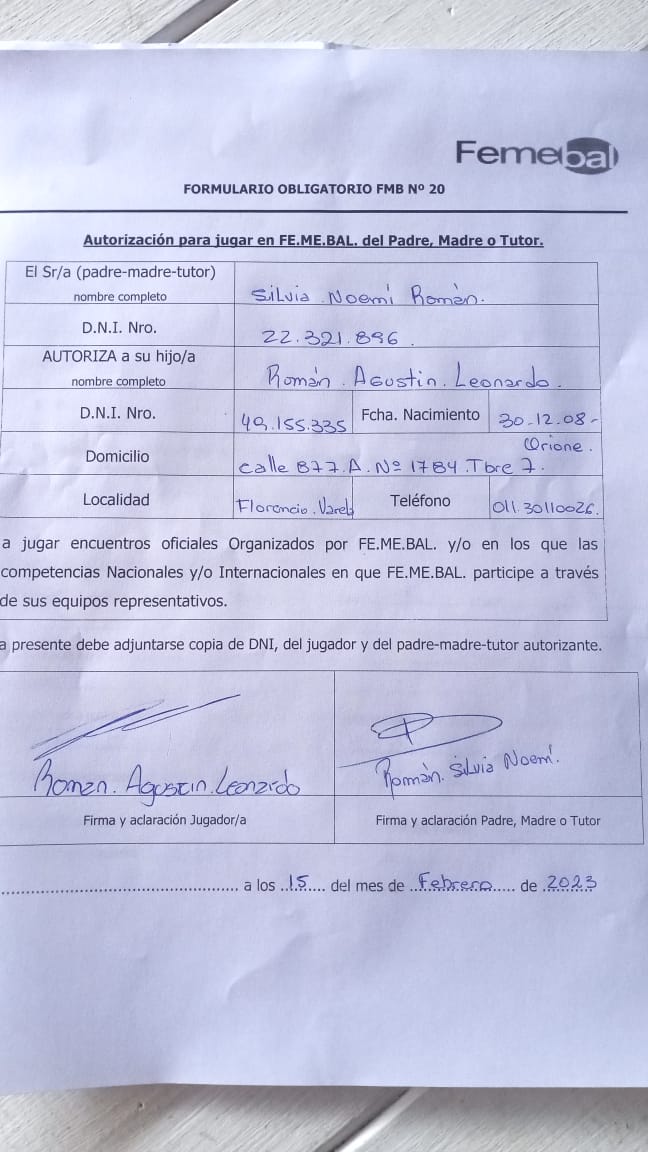 Femebal
FORMULARIO OBLIGATORIO FMB Nº 20
Autorización para jugar en FE.ME.BAL. del Padre, Madre o Tutor.
El Sr/a (padre-madre-tutor)
nombre completo
Silvia Noemí Román.
D.N.I. Nro.
22.321.896.
AUTORIZA a su hijo/a
nombre completo
Román. Agustin. Leonardo.
D.N.I. Nro.
49.155.335
Fcha. Nacimiento
30-12.08-
Domicilio
Orione.
calle 877.A. Nº 1784. Tbre 7.
Localidad
Florencio. Varela
Teléfono
011.30110026.
a jugar encuentros oficiales Organizados por FE.ME.BAL. y/o en los que las
competencias Nacionales y/o Internacionales en que FE.ME.BAL. participe a través
de sus equipos representativos.
a presente debe adjuntarse copia de DNI, del jugador y del padre-madre-tutor autorizante.
Roman. Agustin. Leonardo
Román. Silvia Noemí.
Firma y aclaración Jugador/a
Firma y aclaración Padre, Madre o Tutor
a los ..15.... del mes de ..Febrero..... de .2023